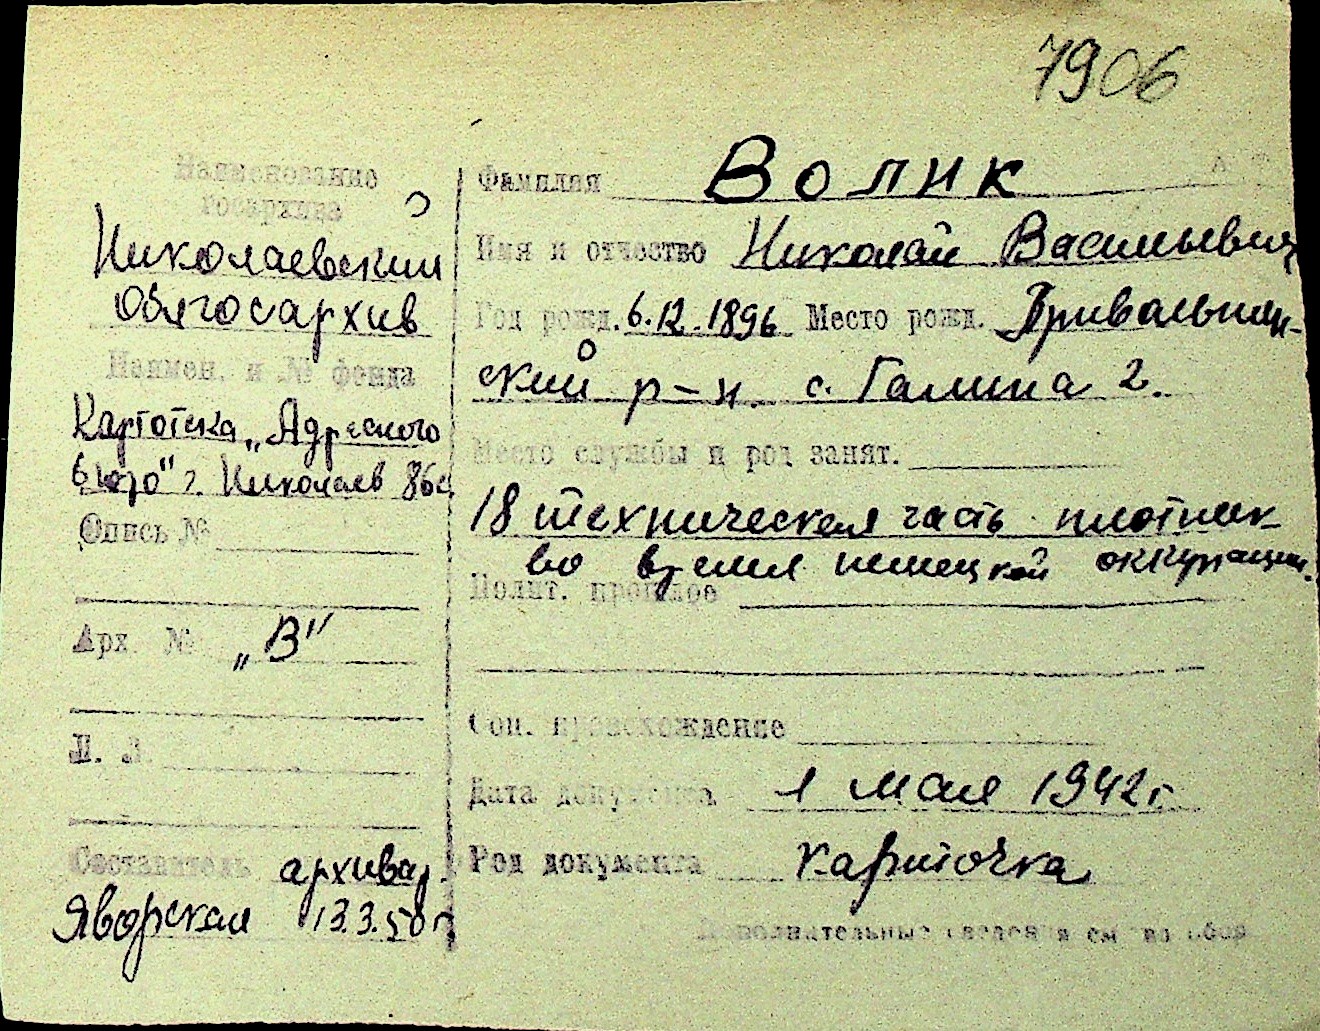 7906
Наименование
госархива
Николаевский
Облгосархив
Наимен. и № фонда
Картотека „Адресного
бюро" г. Николаев 86с.
Опись №
Арх. № „В"
Л. Л.
Составитель архивар.
Яворская 13.3.50 г.
Фамилия Волик
Имя и отчество Николай Васильевич
Год рожд. 6.12.1896 Место рожд.
ский р-н. с. Галина 2.
Место службы и род занят.
18 техническая часть плотник
во время немецкой оккупации.
Полит. прошлое
Соц. происхождение
Дата документа 1 мая 1942 г.
Род документа карточка
Дополнительные сведения см. на обор.